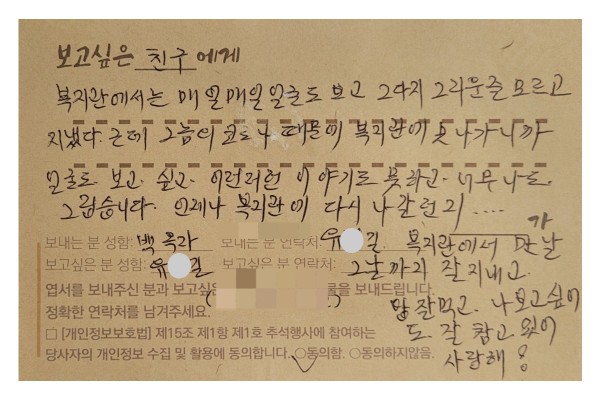 보고싶은 친구에게
복지관에서는 매일매일 얼굴도 보고 그다지 그리운줄 모르고
지냈다. 근데 그놈의 코로나 때문에 복지관에 못 나가니까
얼굴도 보고 싶고 이런저런 이야기도 못하고 너무나도
그립습니다. 언제나 복지관에 다시 나갈런지....
보내는 분 성함: 백옥라 보내는 분 연락처: 유 길가 복지관에서 만날
보고싶은 분 성함: 유 길 보고싶은 분 연락처: 그날까지 잘 지내고
엽서를 보내주신 분과 보고싶은 물을 보내드립니다. 밥 잘먹고 나 보고싶어
정확한 연락처를 남겨주세요. 도 잘 참고 있어
□ [개인정보보호법] 제15조 제1항 제1호 추석행사에 참여하는 사랑해!
당사자의 개인정보 수집 및 활용에 동의합니다. ○동의함. ○동의하지않음.